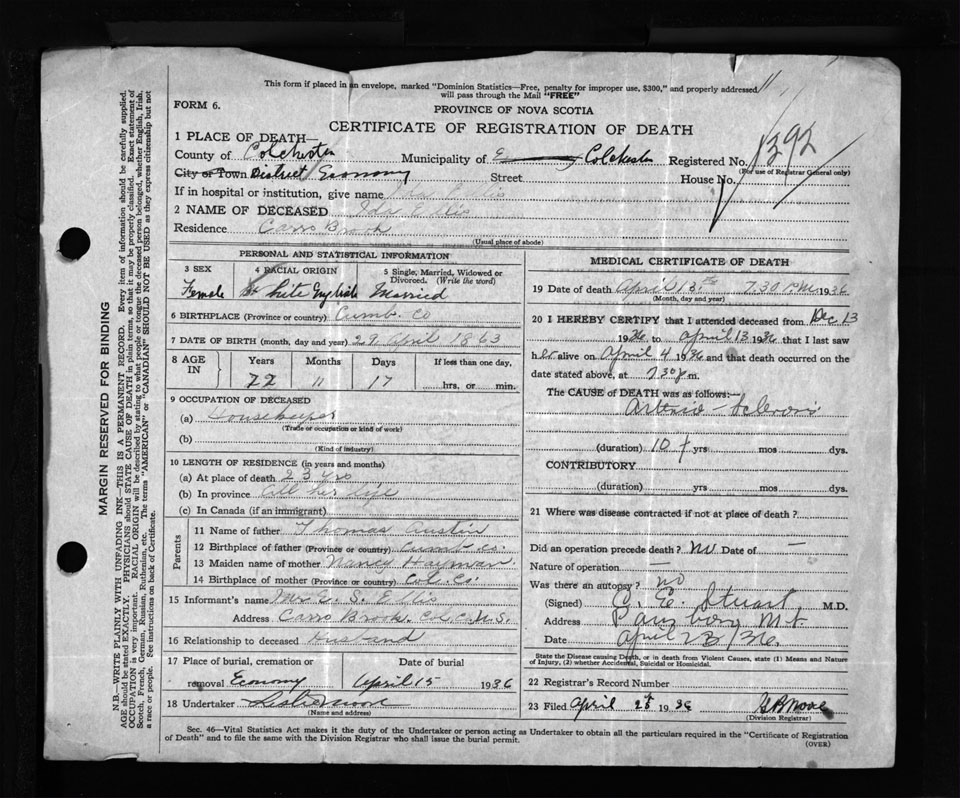 This form if placed in an envelope, marked "Dominion Statistics—Free, penalty for improper use, $300," and properly addressed
will pass through the Mail "FREE"
FORM 6.
PROVINCE OF NOVA SCOTIA
CERTIFICATE OF REGISTRATION OF DEATH
1 PLACE OF DEATH—
County of Colchester Municipality of Colchester Registered No. 1392
(For use of Registrar General only)
City or Town District Economy Street House No.
If in hospital or institution, give name
2 NAME OF DECEASED Ida Ellis
Residence Carrs Brook
(Usual place of abode)
PERSONAL AND STATISTICAL INFORMATION
3 SEX 4 RACIAL ORIGIN 5 Single, Married, Widowed or Divorced. (Write the word)
Female White English Married
6 BIRTHPLACE (Province or country) Cumb. Co
7 DATE OF BIRTH (month, day and year) 29 April 1863
8 AGE IN Years Months Days If less than one day,
72 11 17 hrs. or min.
9 OCCUPATION OF DECEASED
(a) Housekeeper
(Trade or occupation or kind of work)
(b)
(Kind of industry)
10 LENGTH OF RESIDENCE (in years and months)
(a) At place of death 23 yrs
(b) In province All her life
(c) In Canada (if an immigrant)
Parents
11 Name of father Thomas Austin
12 Birthplace of father (Province or country) Cumb. Co.
13 Maiden name of mother Nancy Hayman
14 Birthplace of mother (Province or country) Col. Co.
15 Informant's name Mrs S. Ellis
Address Carrs Brook, Col. C. N.S.
16 Relationship to deceased Husband
17 Place of burial, cremation or Date of burial
removal Economy April 15 1936
18 Undertaker
(Name and address)
MEDICAL CERTIFICATE OF DEATH
19 Date of death April 13th 7.30 P.M. 1936
(Month, day and year)
20 I HEREBY CERTIFY that I attended deceased from Dec 13
1936 to April 13 1936 that I last saw
her alive on April 4 1936 and that death occurred on the
date stated above, at 7 30 p m.
The CAUSE of DEATH was as follows:—
Arterio-Sclerosis
(duration) 10 + yrs mos dys.
CONTRIBUTORY
(duration) yrs mos dys.
21 Where was disease contracted if not at place of death?
Did an operation precede death? no Date of —
Nature of operation —
Was there an autopsy? no
(Signed) C. E. Stuart M.D.
Address
Date April 23/36.
State the Disease causing Death, or in death from Violent Causes, state (1) Means and Nature
of Injury, (2) whether Accidental, Suicidal or Homicidal.
22 Registrar's Record Number
23 Filed April 25 1936
(Division Registrar)
Sec. 46—Vital Statistics Act makes it the duty of the Undertaker or person acting as Undertaker to obtain all the particulars required in the "Certificate of Registration
of Death" and to file the same with the Division Registrar who shall issue the burial permit. (OVER)
MARGIN RESERVED FOR BINDING
N.B.—WRITE PLAINLY WITH UNFADING INK—THIS IS A PERMANENT RECORD. Every item of information should be carefully supplied.
AGE should be stated EXACTLY. PHYSICIANS should STATE CAUSE OF DEATH in plain terms, so that it may be properly classified. Exact statement of
OCCUPATION is very important. RACIAL ORIGIN will be described by stating to what people or tongue the deceased person belonged, whether English, Irish,
Scotch, French, German, Russian, Ruthenian, etc. The terms "AMERICAN" or "CANADIAN" SHOULD NOT BE USED as they express citizenship but not
a race or people. See instructions on back of Certificate.